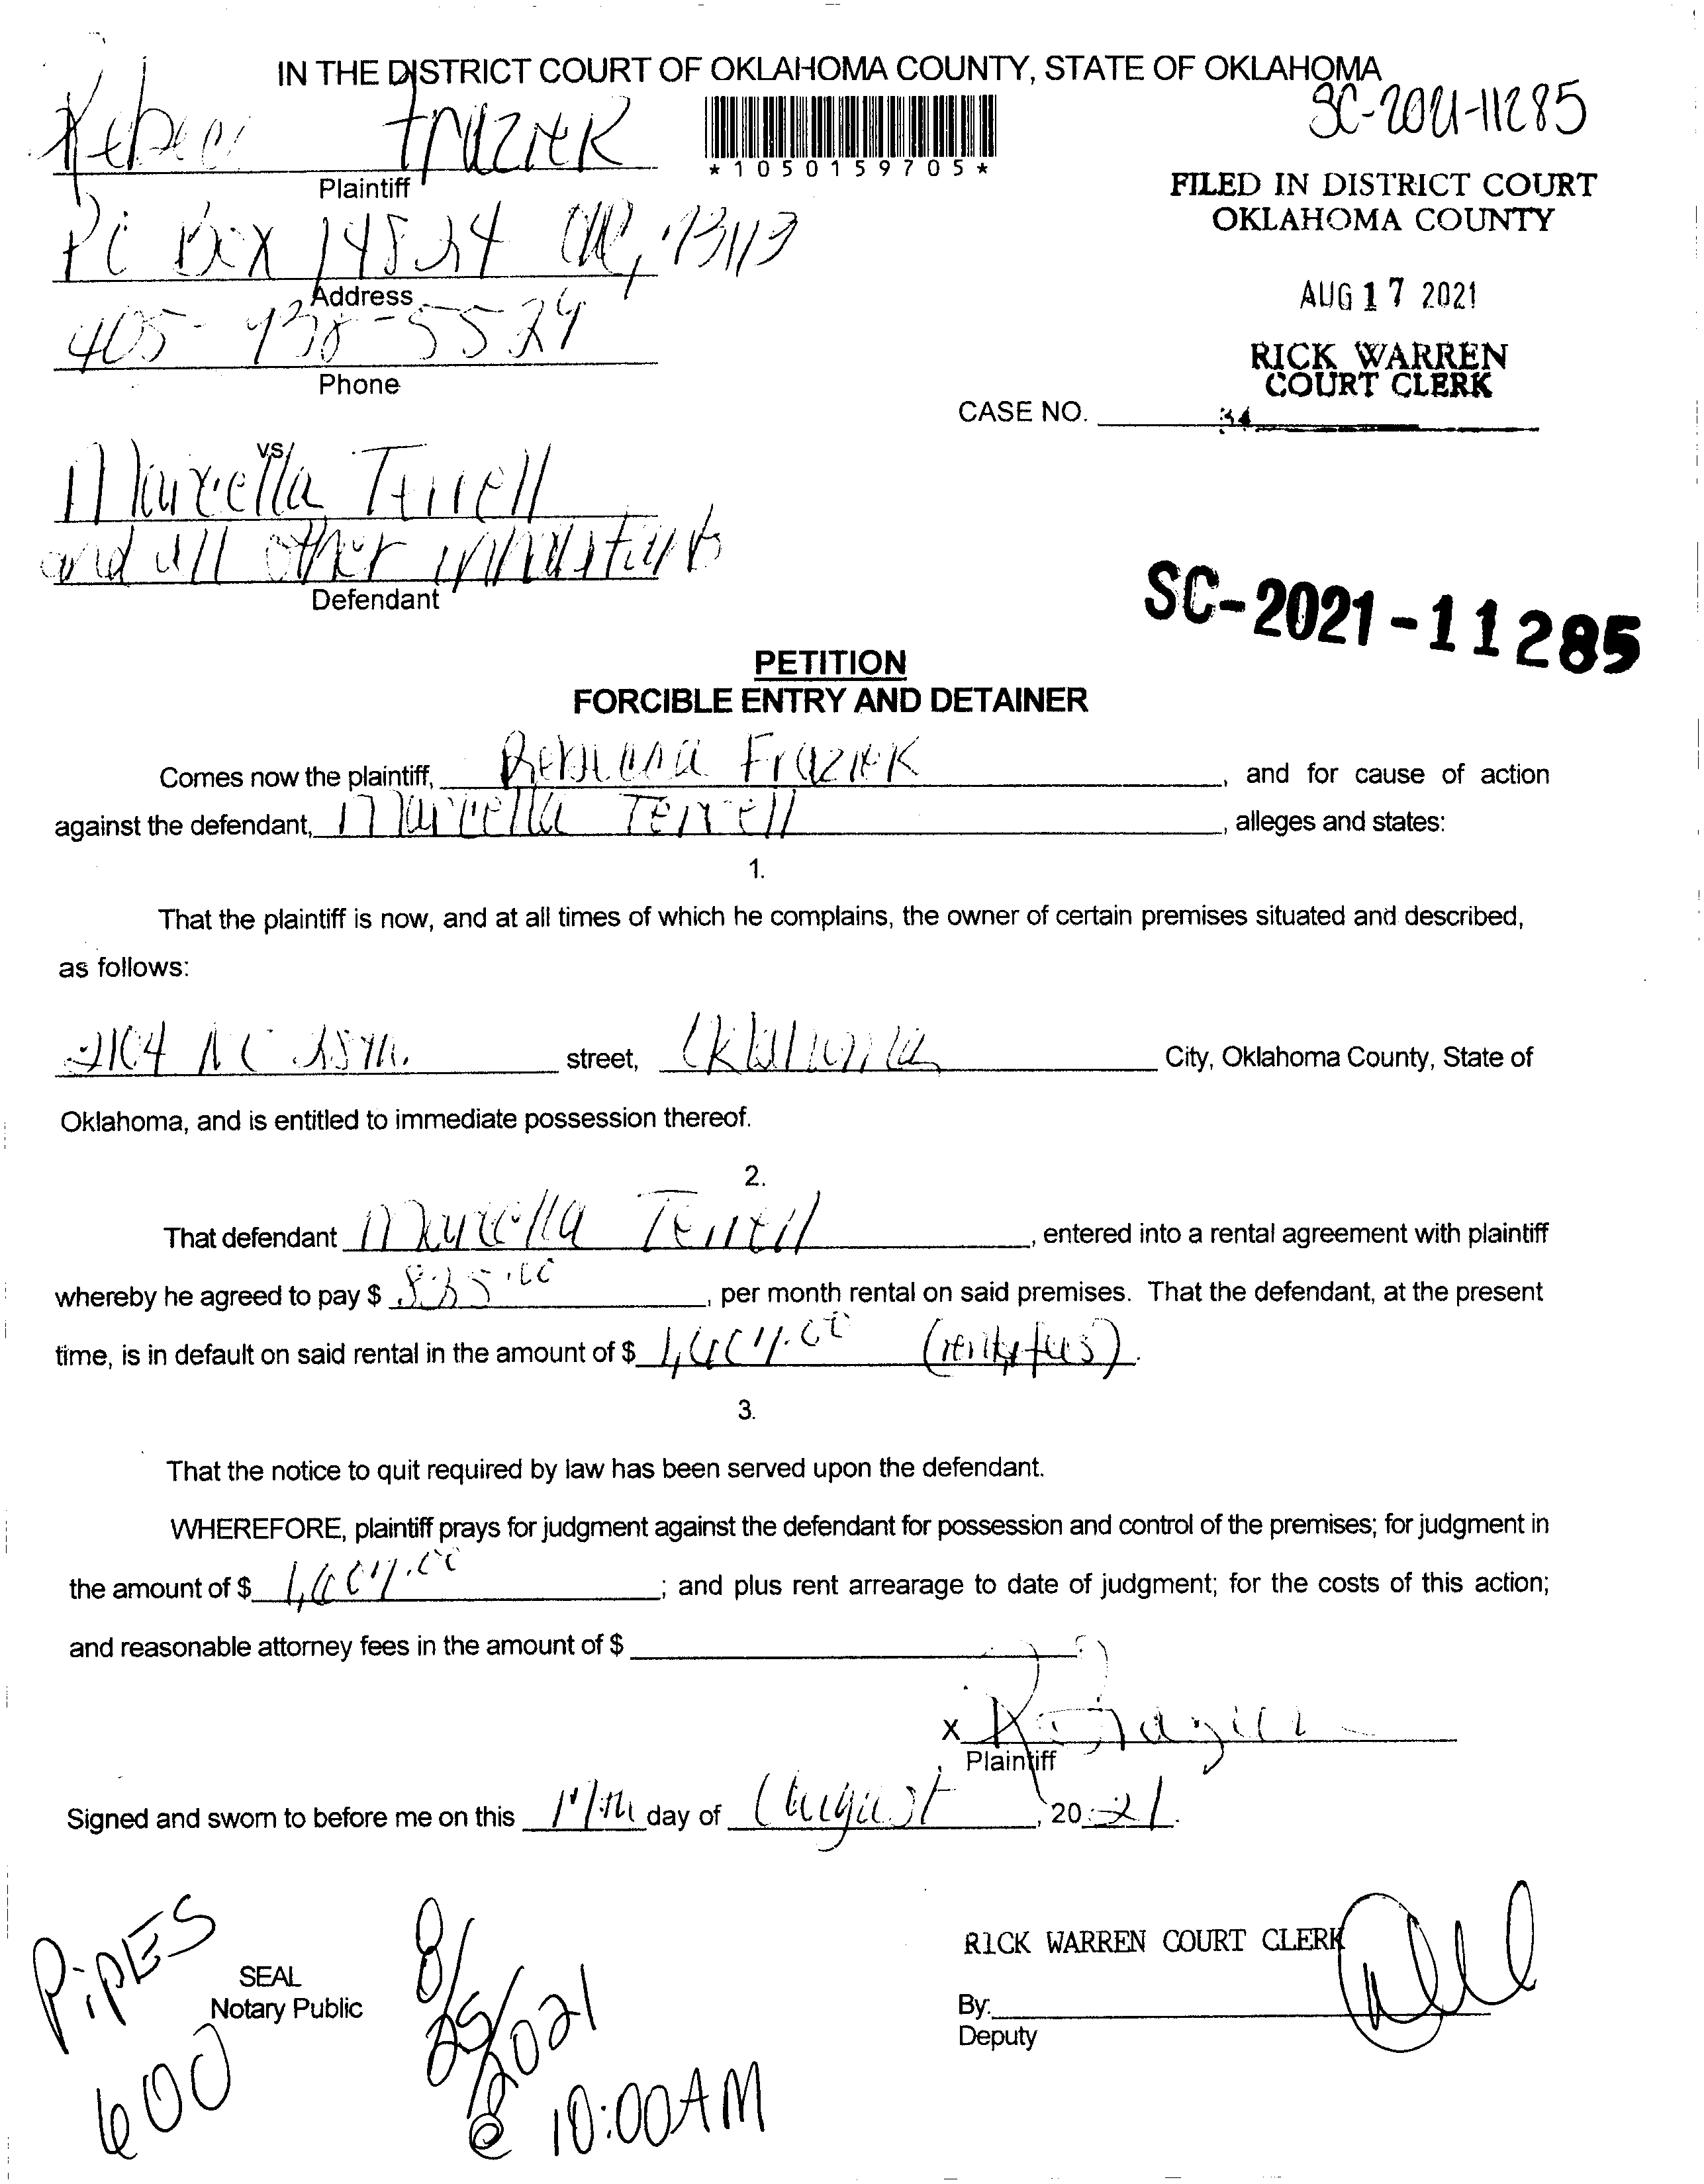 IN THE DISTRICT COURT OF OKLAHOMA COUNTY, STATE OF OKLAHOMA
SC-2021-11285
FRAZIER
*1050159705*
Plaintiff
FILED IN DISTRICT COURT
OKLAHOMA COUNTY
Box 14824 73113
Address
AUG 17 2021
405- 5524
Phone
RICK WARREN
COURT CLERK
CASE NO.
34
vs.
Marcella Terrell
and all other inhabitants
Defendant
SC-2021-11285
PETITION
FORCIBLE ENTRY AND DETAINER
Comes now the plaintiff, Frazier, and for cause of action
against the defendant, Marcella Terrell, alleges and states:
1.
That the plaintiff is now, and at all times of which he complains, the owner of certain premises situated and described,
as follows:
street, Oklahoma City, Oklahoma County, State of
Oklahoma, and is entitled to immediate possession thereof.
2.
That defendant Marcella Terrell, entered into a rental agreement with plaintiff
whereby he agreed to pay $, per month rental on said premises. That the defendant, at the present
time, is in default on said rental in the amount of $
3.
That the notice to quit required by law has been served upon the defendant.
WHEREFORE, plaintiff prays for judgment against the defendant for possession and control of the premises; for judgment in
the amount of $; and plus rent arrearage to date of judgment; for the costs of this action;
and reasonable attorney fees in the amount of $
X
Plaintiff
Signed and sworn to before me on this 17th day of August, 2021.
PIPES
600
SEAL
Notary Public
8/25/2021
@ 10:00AM
RICK WARREN COURT CLERK
By:
Deputy